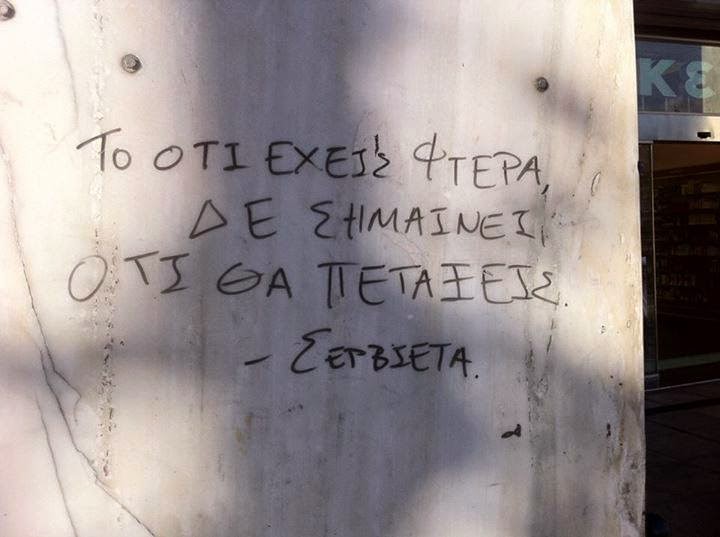 ΤΟ ΟΤΙ ΕΧΕΙΣ ΦΤΕΡΑ,
ΔΕ ΣΗΜΑΙΝΕΙ,
ΟΤΙ ΘΑ ΠΕΤΑΞΕΙΣ.
- ΣΕΡΒΙΕΤΑ.